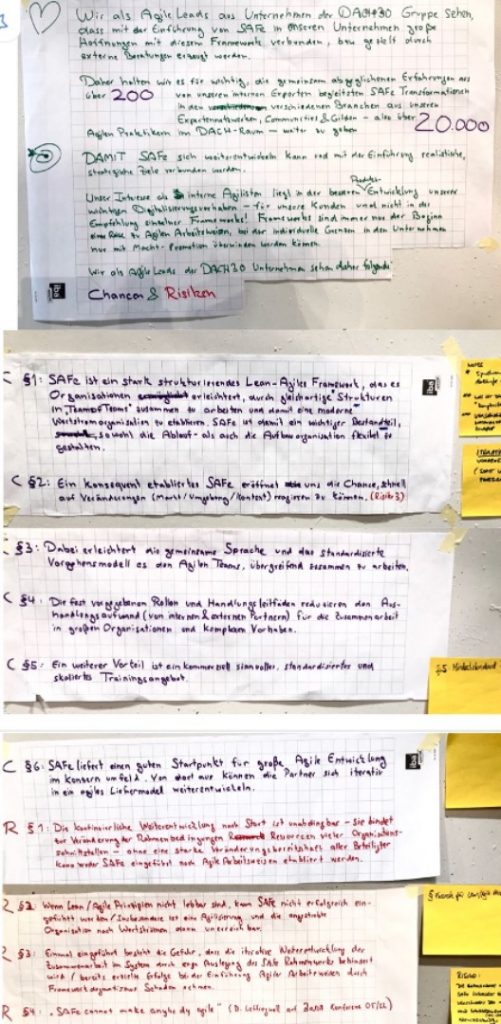 Wir als Agile Leads aus Unternehmen der DACH30 Gruppe sehen,
dass mit der Einführung von SAFe in unseren Unternehmen große
Hoffnungen mit diesem Framework verbunden, bzw gezielt durch
externe Beratungen erzeugt werden.
Daher halten wir es für wichtig, die gemeinsam abgeglichenen Erfahrungen aus
über 200 von unseren internen Experten begleiteten SAFe Transformationen
in den verschiedenen Branchen aus unseren
Expertennetzwerken, Communities & Gilden - also über 20.000
Agilen Praktikern im DACH-Raum - weiter zu geben
DAMIT SAFe sich weiterentwickeln kann und mit der Einführung realistische,
strategische Ziele verbunden werden.
Unser Interesse als interne Agilisten liegt in der besseren Produkt-Entwicklung unserer
wichtigen Digitalisierungsvorhaben - für unsere Kunden und nicht in der
Empfehlung einzelner Frameworks! Frameworks sind immer nur der Beginn
einer Reise zu Agilen Arbeitsweisen, bei der individuelle Grenzen in den Unternehmen
nur mit Macht-Promotion überwunden werden können.
Wir als Agile Leads der DACH30 Unternehmen sehen daher folgende
Chancen & Risiken
iba
C §1: SAFe ist ein stark strukturierendes Lean-Agiles Framework, das es
Organisationen erleichtert, durch gleichartige Strukturen
in "Team of Teams" zusammen zu arbeiten und damit eine moderne
Wertstromorganisation zu etablieren. SAFe ist damit ein wichtiger Bestandteil,
sowohl die Ablauf- als auch die Aufbauorganisation flexibel zu
gestalten.
iba
C §2: Ein konsequent etabliertes SAFe eröffnet uns die Chance, schnell
auf Veränderungen (Markt/Umgebung/Kontext) reagieren zu können. (Risiko 3)
C §3: Dabei erleichtert die gemeinsame Sprache und das standardisierte
Vorgehensmodell es den Agilen Teams, übergreifend zusammen zu arbeiten.
C §4: Die fest vorgegebenen Rollen und Handlungsleitfäden reduzieren den Aus-
handlungsaufwand (von internen & externen Partnern) für die Zusammenarbeit
in großen Organisationen und komplexen Vorhaben.
C §5: Ein weiterer Vorteil ist ein kommerziell sinnvolles, standardisiertes und
skaliertes Trainingsangebot.
C §6: SAFe liefert einen guten Startpunkt für große Agile Entwicklung
im Konzernumfeld. Von dort aus können die Partner sich iterativ
in ein agiles Liefermodell weiterentwickeln.
iba
R §1: Die kontinuierliche Weiterentwicklung nach Start ist unabdingbar - sie bindet
zur Veränderung der Rahmenbedingungen Ressourcen vieler Organisations-
schnittstellen - ohne eine starke Veränderungsbereitschaft aller Beteiligter
kann weder SAFe eingeführt noch Agile Arbeitsweisen etabliert werden.
R §2: Wenn Lean/Agile Prinzipien nicht lebbar sind, kann SAFe nicht erfolgreich ein-
geführt werden / Insbesondere ist eine Agilisierung und die angestrebte
Organisation nach Wertströmen dann unerreichbar.
R §3: Einmal eingeführt besteht die Gefahr, dass die iterative Weiterentwicklung der
Zusammenarbeit im System durch enge Auslegung des SAFe Rahmenwerks behindert
wird / bereits erzielte Erfolge bei der Einführung Agiler Arbeitsweisen durch
Frameworkdogmatismus Schaden nehmen.
R §4: "SAFe cannot make anybody agile" (D. Leffingwell auf